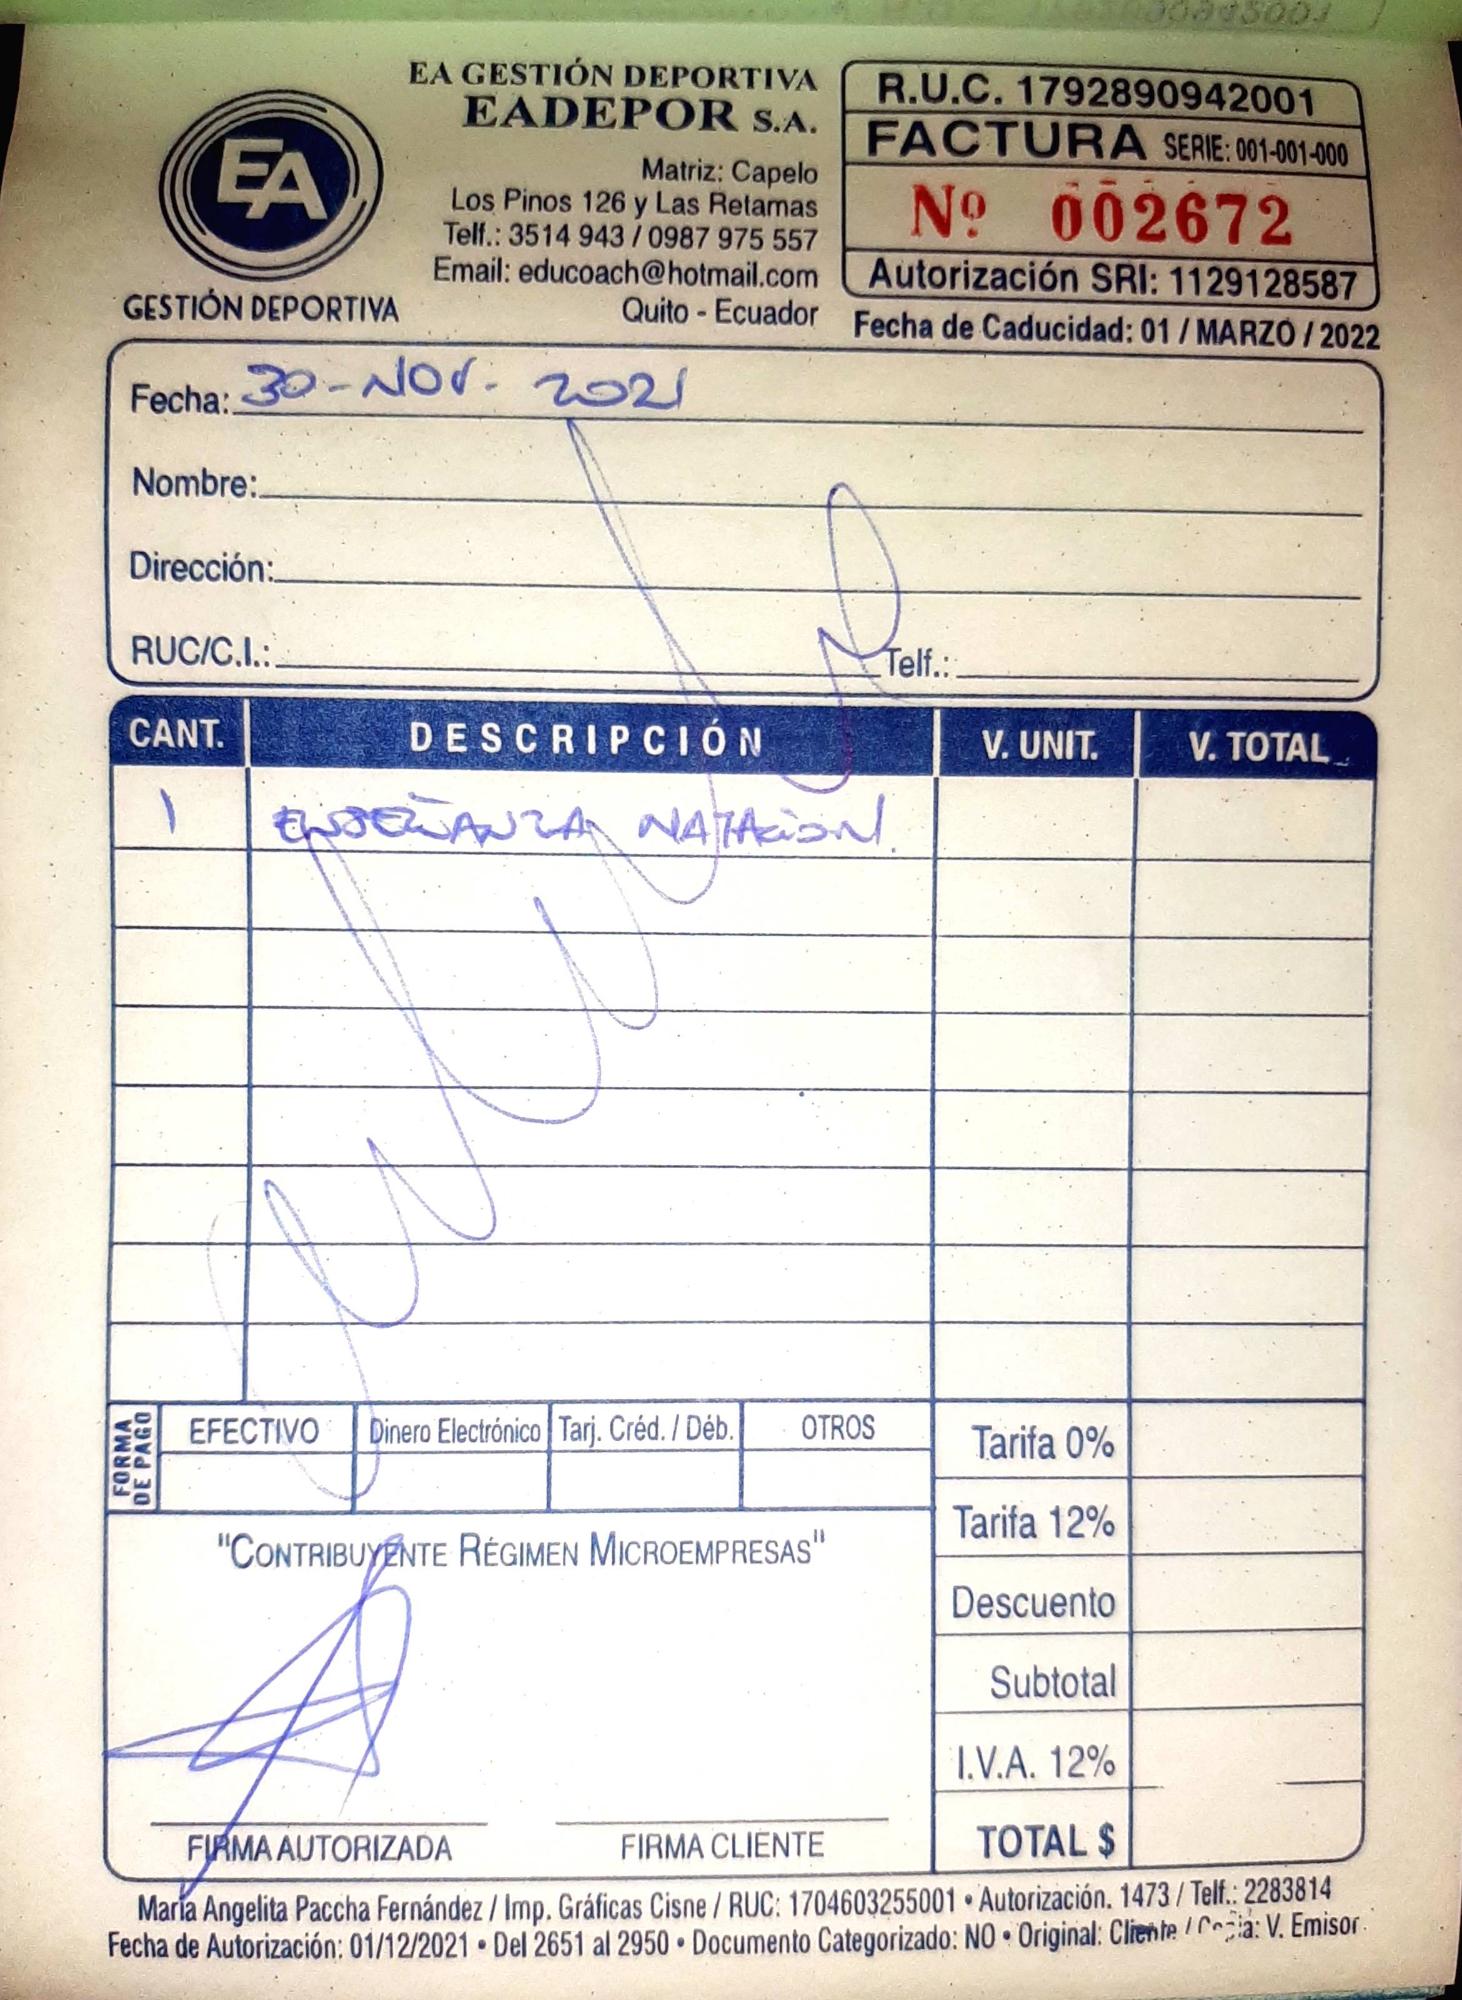 EA GESTIÓN DEPORTIVA
EADEPOR S.A.
EA
GESTIÓN DEPORTIVA
Matriz: Capelo
Los Pinos 126 y Las Retamas
Telf.: 3514 943 / 0987 975 557
Email: educoach@hotmail.com
Quito - Ecuador
R.U.C. 1792890942001
FACTURA SERIE: 001-001-000
Nº 002672
Autorización SRI: 1129128587
Fecha de Caducidad: 01 / MARZO / 2022
Fecha: 30-NOV. 2021
Nombre:
Dirección:
RUC/C.I.: Telf.:
CANT. DESCRIPCIÓN V. UNIT. V. TOTAL
1 ENSEÑANZA NATACION.
FORMA DE PAGO
EFECTIVO Dinero Electrónico Tarj. Créd. / Déb. OTROS
Tarifa 0%
Tarifa 12%
Descuento
Subtotal
I.V.A. 12%
TOTAL $
"CONTRIBUYENTE RÉGIMEN MICROEMPRESAS"
FIRMA AUTORIZADA FIRMA CLIENTE
María Angelita Paccha Fernández / Imp. Gráficas Cisne / RUC: 1704603255001 • Autorización. 1473 / Telf.: 2283814
Fecha de Autorización: 01/12/2021 • Del 2651 al 2950 • Documento Categorizado: NO • Original: Cliente / Copia: V. Emisor